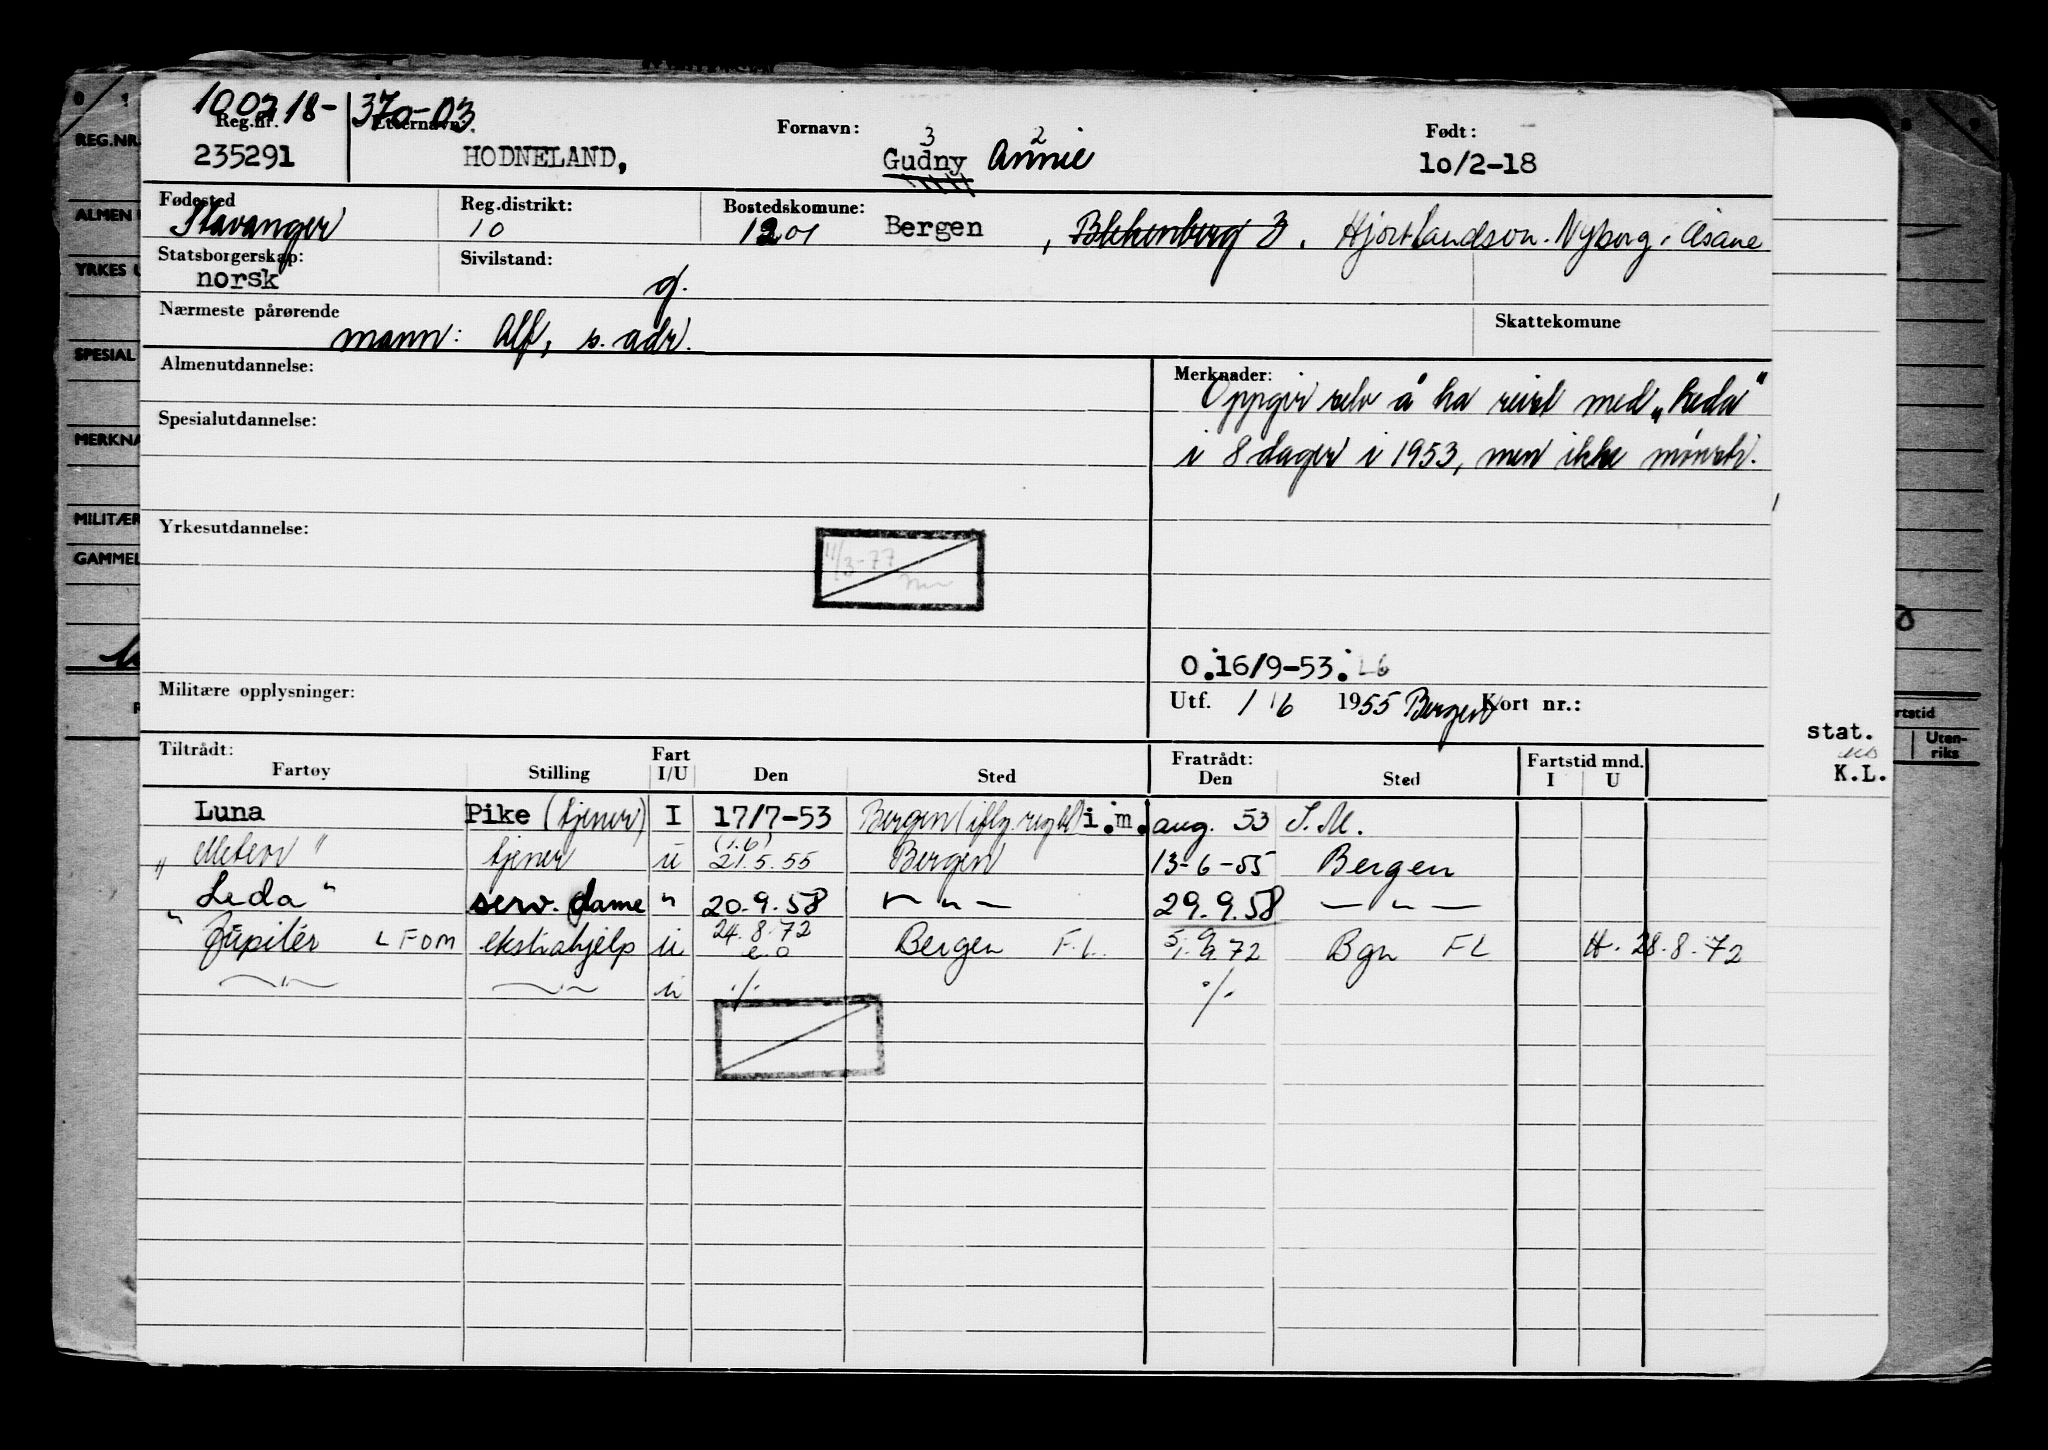 100218- 370-03
Reg.nr. Etternavn: Fornavn: 3 2 Født:
235291 HODNELAND, Gudny Annie 10/2-18
Fødested Reg.distrikt: Bostedskomune:
Stavanger 10 1201 Bergen , Blekenberg 3. Hjortlandson. Nyborg i Åsane
Statsborgerskap: Sivilstand:
norsk g.
Nærmeste pårørende Skattekomune
mann: Alf, s. adr.
Almenutdannelse: Merknader:
Oppgir selv å ha reist med „Leda"
Spesialutdannelse:
i 8 dager i 1953, men ikke mønstr.
Yrkesutdannelse:
11/3-77
O.16/9-53. L6
Militære opplysninger: Utf. 1/6 1955 Bergen Kort nr.:
Tiltrådt: Fart Fratrådt: Fartstid mnd.
Fartøy Stilling I/U Den Sted Den Sted I U
Luna Pike (tjener) I 17/7-53 Bergen (iflg. regbl) i.m. aug. 53 S.M.
(1.6)
„ Meteor " tjener u 21.5.55 Bergen 13-6-55 Bergen
Leda " serv. dame " 20.9.58 — " — 29.9.58 — " —
" Jupiter L F D M ekstrahjelp u 24.8.72 e.o Bergen F.L. 5/9 72 Bgn FL H. 28.8.72
— " — — " — u ./. ./.
REG.NR.
ALMEN
YRKES
SPESIAL
MERKNA
MILITÆR
GAMMEL
stat.
K.L.
rtstid
Uten-
riks